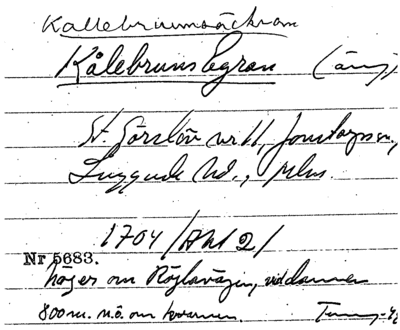 Kallebrunnsäckran
Kålebrunslegran (äng)
St. Görslöv nr 11, Jonstorps sn,
Luggude hd., Mlm
1704 /Akt 2/
Nr 5683.
höger om Röglavägen, vid dammen
800 m. n.ö. om kvarnen.